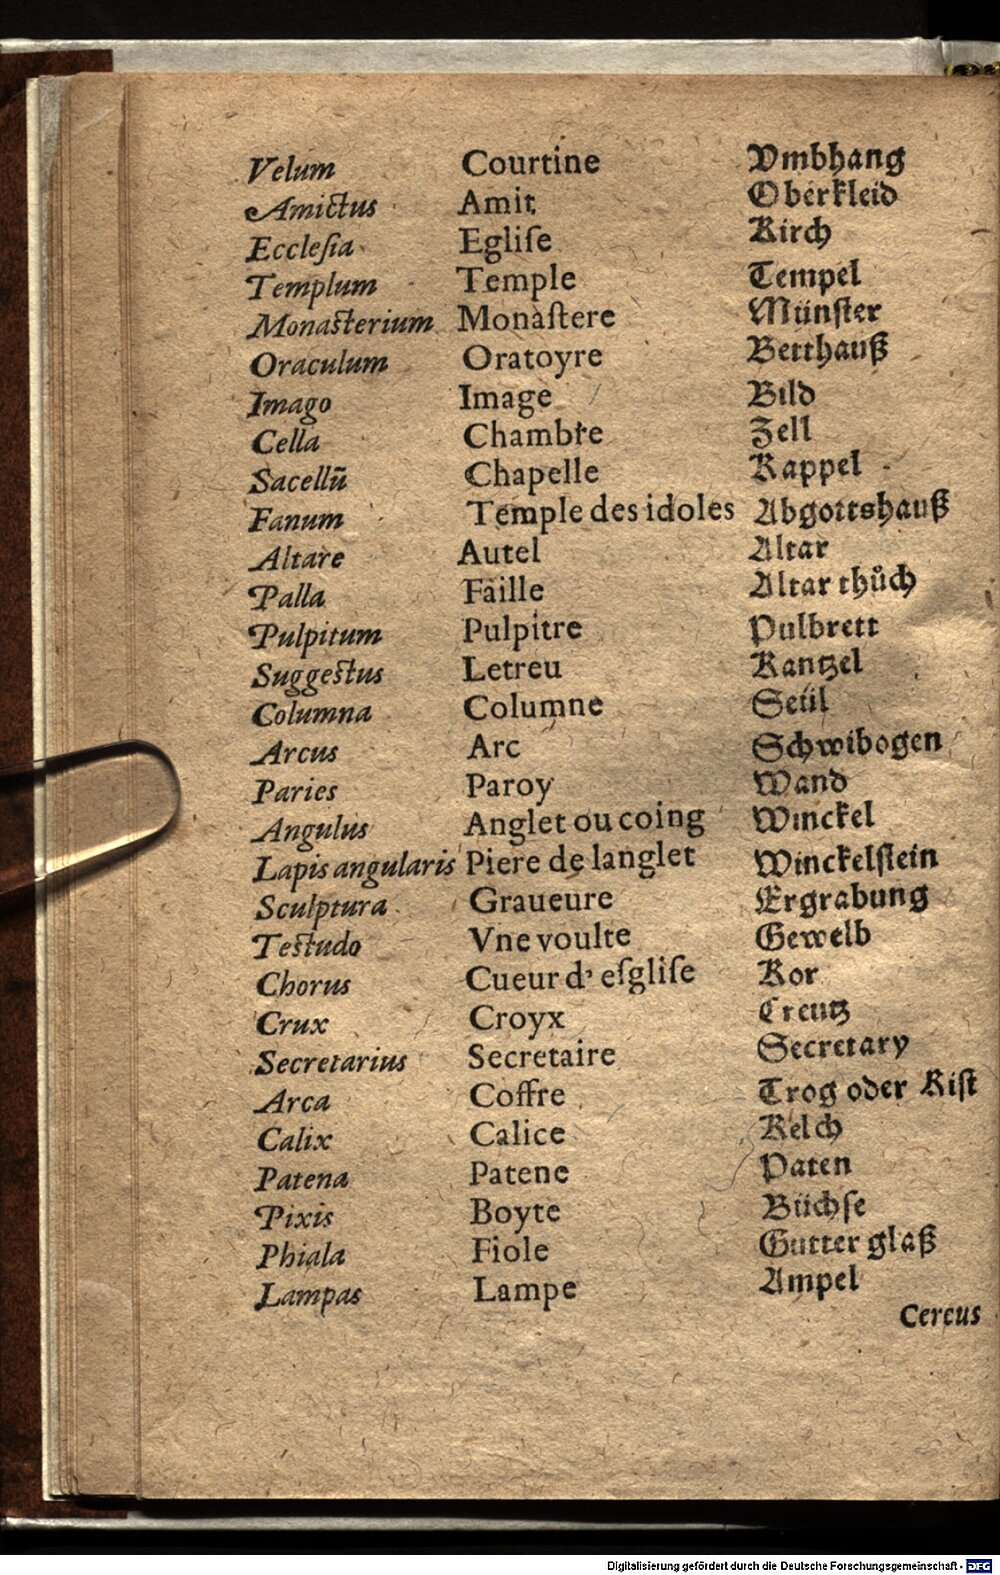 Velum Courtine Vmbhang
Amictus Amit Oberkleid
Eccleſia Egliſe Kirch
Templum Temple Tempel
Monaſterium Monaſtere Münſter
Oraculum Oratoyre Betthauß
Imago Image Bild
Cella Chambre Zell
Sacellũ Chapelle Kappel
Fanum Temple des idoles Abgottshauß
Altare Autel Altar
Palla Faille Altar thůch
Pulpitum Pulpitre Pulbrett
Suggeſtus Letreu Kantzel
Columna Columne Seül
Arcus Arc Schwibogen
Paries Paroy Wand
Angulus Anglet ou coing Winckel
Lapis angularis Piere de langlet Winckelſtein
Sculptura Graueure Ergrabung
Teſtudo Vne voulte Gewelb
Chorus Cueur d' eſgliſe Kor
Crux Croyx Creutz
Secretarius Secretaire Secretary
Arca Coffre Trog oder Kiſt
Calix Calice Kelch
Patena Patene Paten
Pixis Boyte Büchſe
Phiala Fiole Gutter glaß
Lampas Lampe Ampel
Cereus
Digitalisierung gefördert durch die Deutsche Forschungsgemeinschaft - DFG